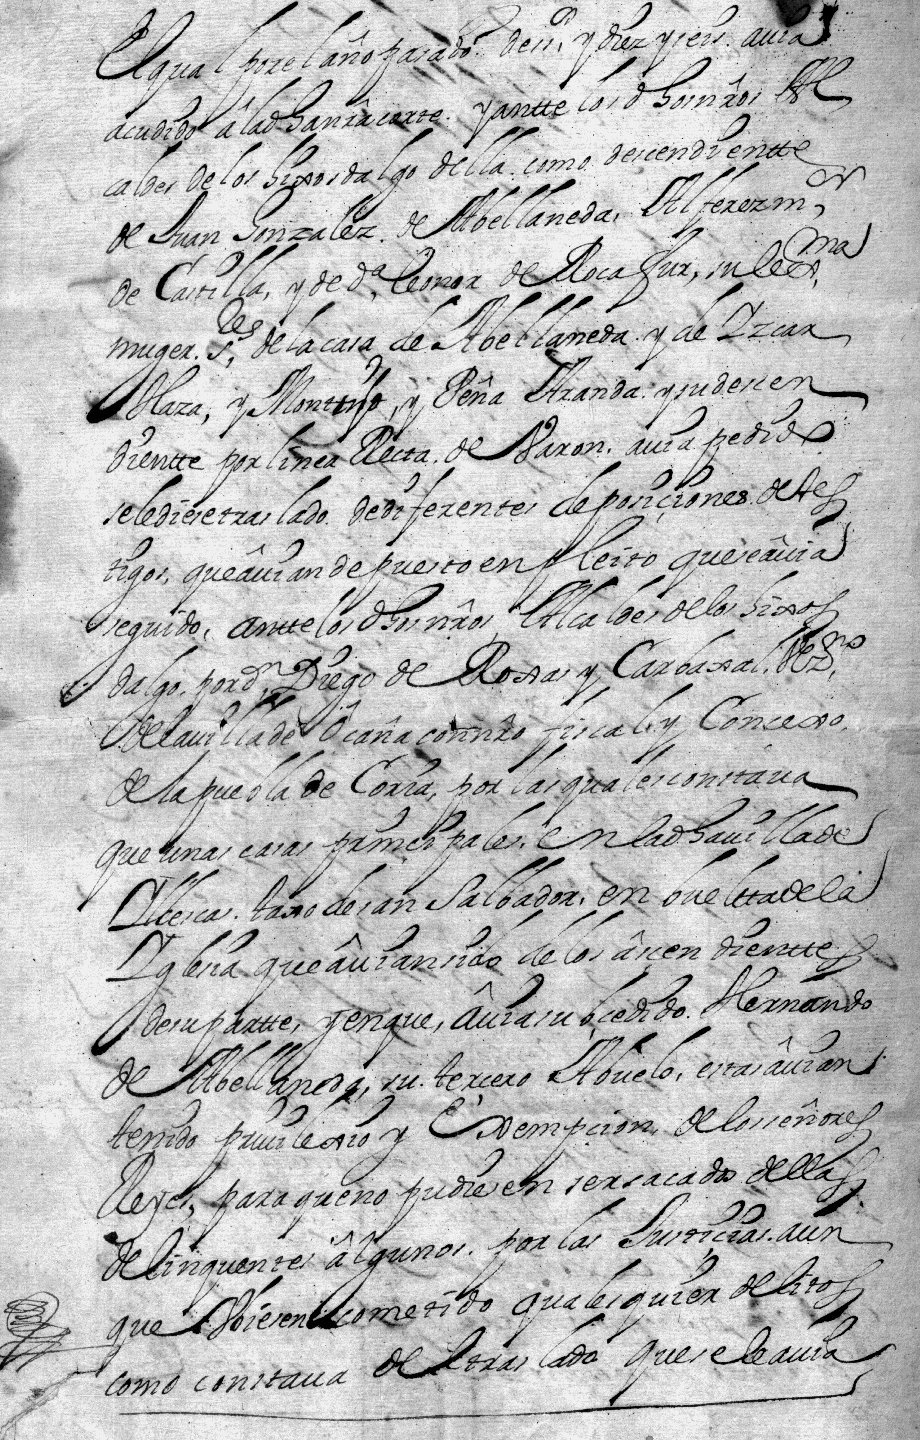 El qual por el año pasado. de sisᵒ y diez y seis. auia
acudido â la dha nrâ corte. y antte los dhos nrôs Al
caldes de los hixosdalgo della. como descendientte
de Juan Gonzalez. de Abellaneda, Alferez mʳ
de Castilla, y de dª, leonor de Roca full, su lexᵐᵃ
muger. Sʳᵉˢ, de la casa de Abellaneda. y de Izcar
Haza, y Monttxo, y Peña Aranda. y su descen
dientte por linea Recta. de Varon. auia pedido
se le diese traslado. de diferentes deposiçiones. de tes
tigos, que âuian depuesto en pleito que se âuia
seguido, antte los dhos nrôs Alcaldes de los hixos
dalgo. por dⁿ, Diego de Roxas y Carbaxal. Vezⁿᵒ,
de la uilla de Ôcaña con nrô fiscal. y Concexo.
de la puebla de Coria, por las quales constaua
que unas casas prinçipales. en la dha uilla de
Illescas. baxo de san Salbador. en buelta de la
Iglesia que âuian sido de los âsçendienttes
de su partte, y en que, âuia subçedido. Hernando
de Abellaneda, su. terçero Abuelo, estas âuian
tenido priuilexio y Exempçion, de los señores
Reyes, para que no pudiesen ser sacados dellas
delinquentes âlgunos. por las Justiçias. aun
que Vbiesen cometido qualesquier delitos
como constaua del traslado que se le auia